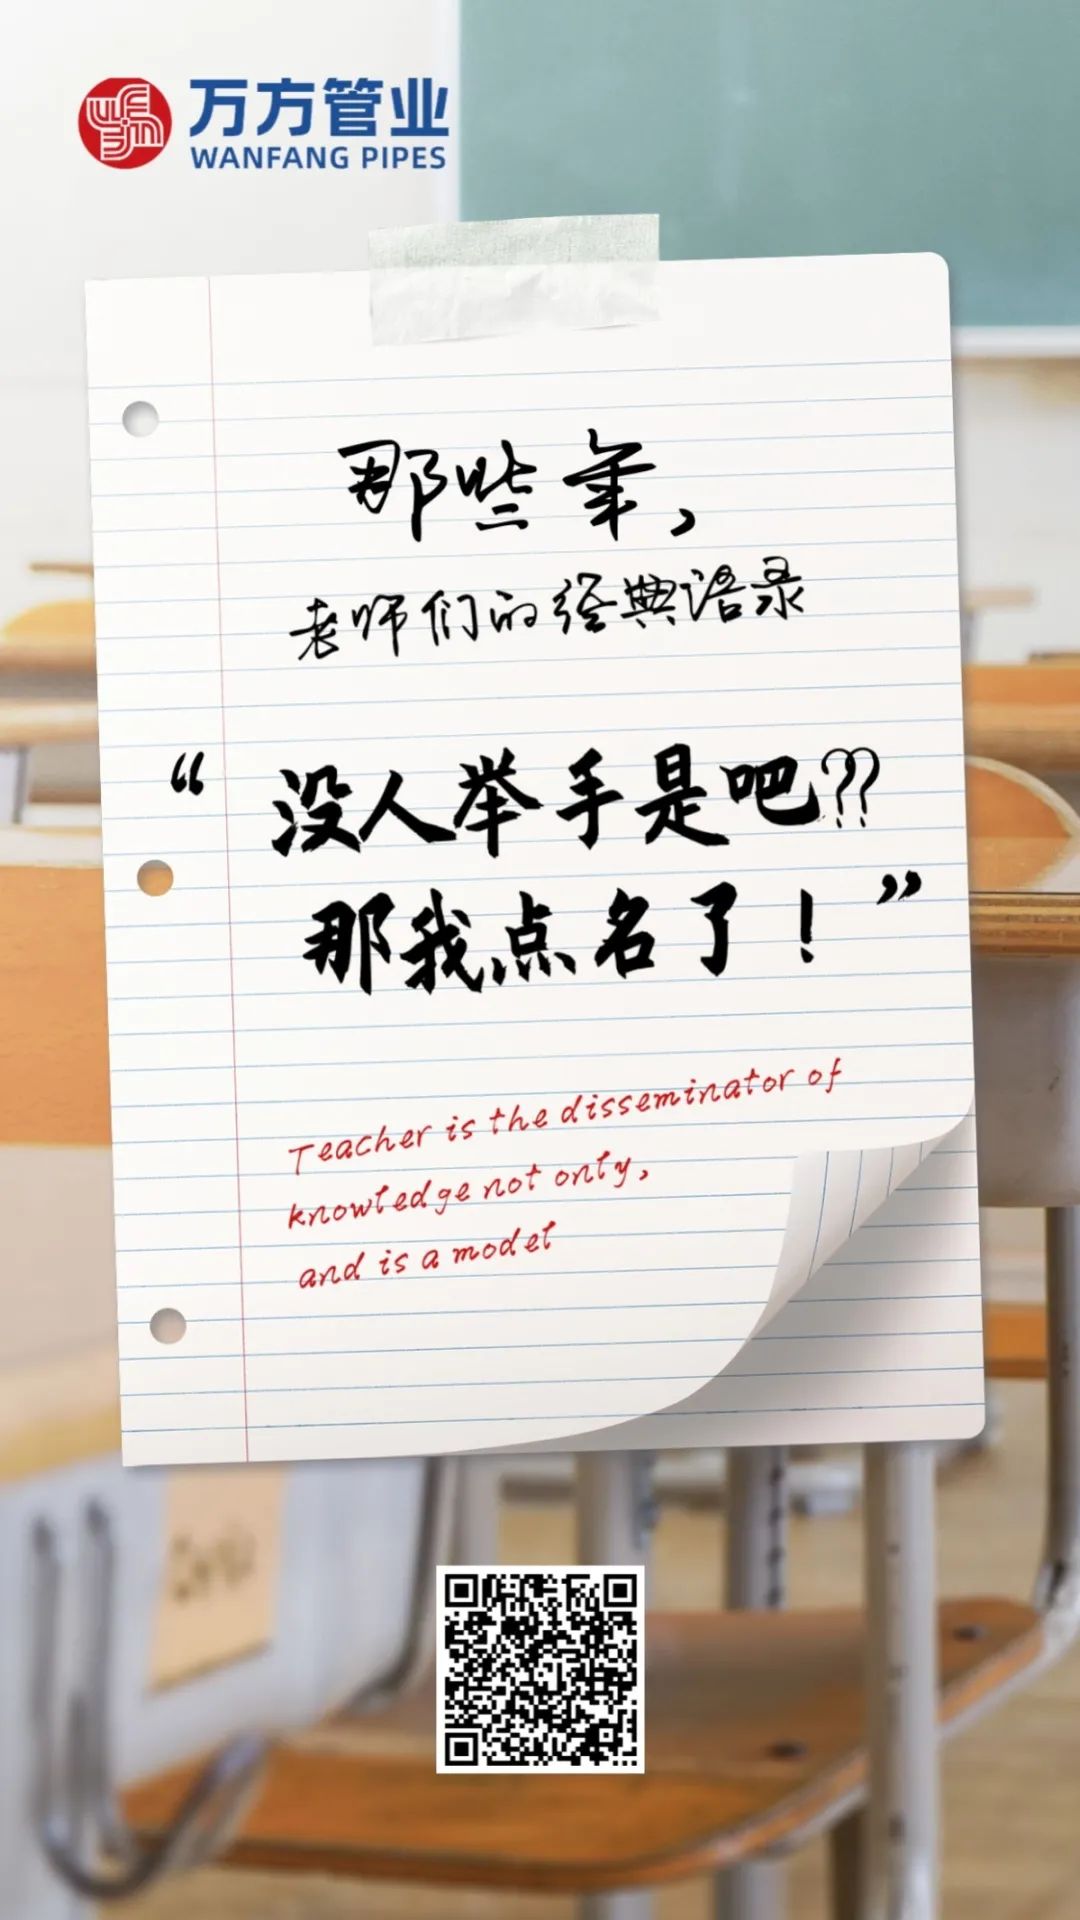 万方管业
WANFANG PIPES
那些年，
老师们的经典语录
“没人举手是吧??
那我点名了！”
Teacher is the disseminator of
knowledge not only,
and is a model